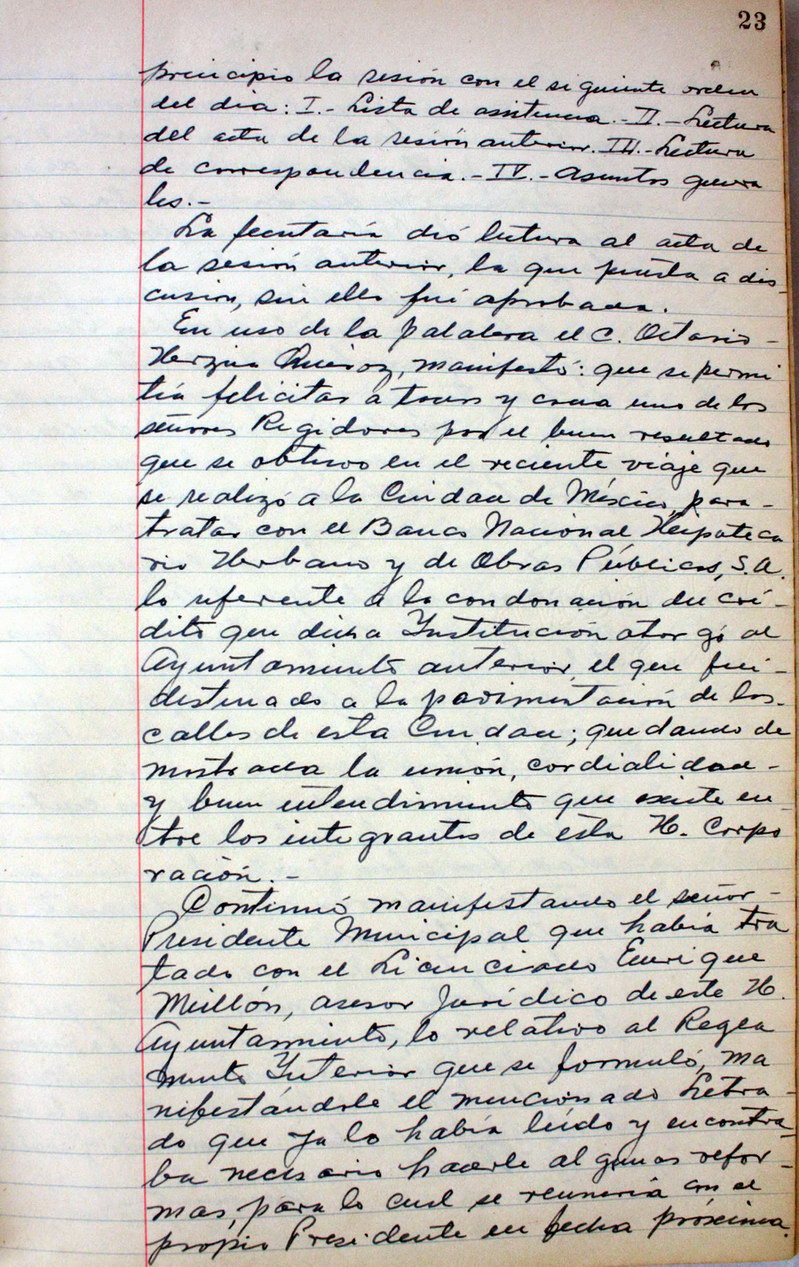 23
principio la sesión con el siguiente orden
del dia: I.- Lista de asistencia.- II.- Lectura
del acta de la sesión anterior. III.- Lectura
de correspondencia.- IV.- Asuntos genera
les.-
La secretaría dió lectura al acta de
la sesión anterior, la que puesta a dis-
cusión, sin ella fué aprobada.
En uso de la palabra el C. Octavio -
Quiroz, manifestó: que se permi
tía felicitar a todos y cada uno de los
señores Regidores por el buen resultado
que se obtuvo en el reciente viaje que
se realizó a la Ciudad de México, para -
tratar con el Banco Nacional Hipoteca
rio Hurbano y de Obras Públicas, S.A.
lo referente a la condonación del cré-
dito que dicha Institución otorgó al
Ayuntamiento anterior, el que fué -
destinado a la pavimentación de las-
calles de esta Ciudad; quedando de
mostrada la unión, cordialidad -
y buen entendimiento que existe en-
tre los integrantes de esta H. Corpo
ración.-
Continuó manifestando el señor -
Presidente Municipal que había tra
tado con el Licenciado Enrique
Meillón, asesor Jurídico de este H.
Ayuntamiento, lo relativo al Regla
mento Interior que se formuló, ma
nifestándole el mencionado Letra-
do que ya lo había leído y encontra-
ba necesario hacerle algunas refor-
mas, para lo cual se reuniría con el
propio Presidente en fecha próxima.